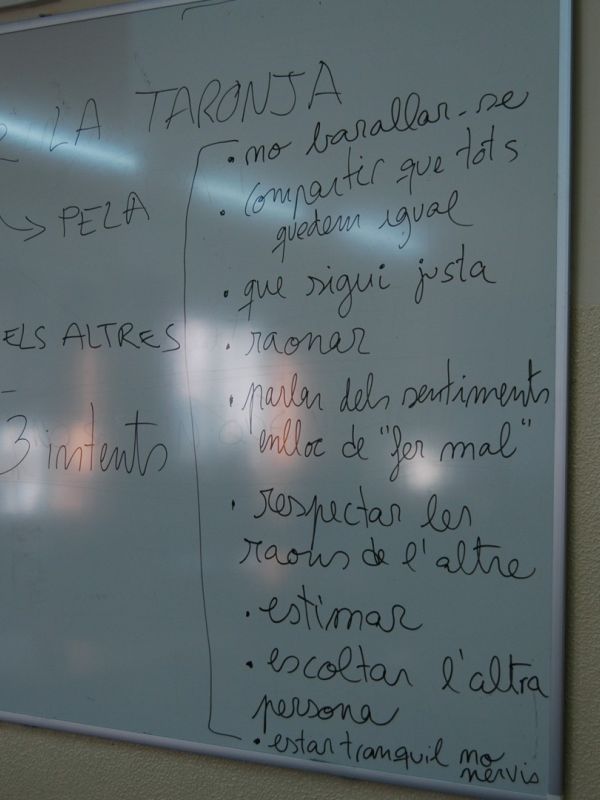 LA TARONJA
→ PELA
ELS ALTRES
3 intents
• no barallar-se
• compartir que tots
quedem igual
• que sigui justa
• raonar
• parlar dels sentiments
enlloc de "fer mal"
• respectar les
raons de l'altre
• estimar
• escoltar l'altra
persona
• estar tranquil no
nervis